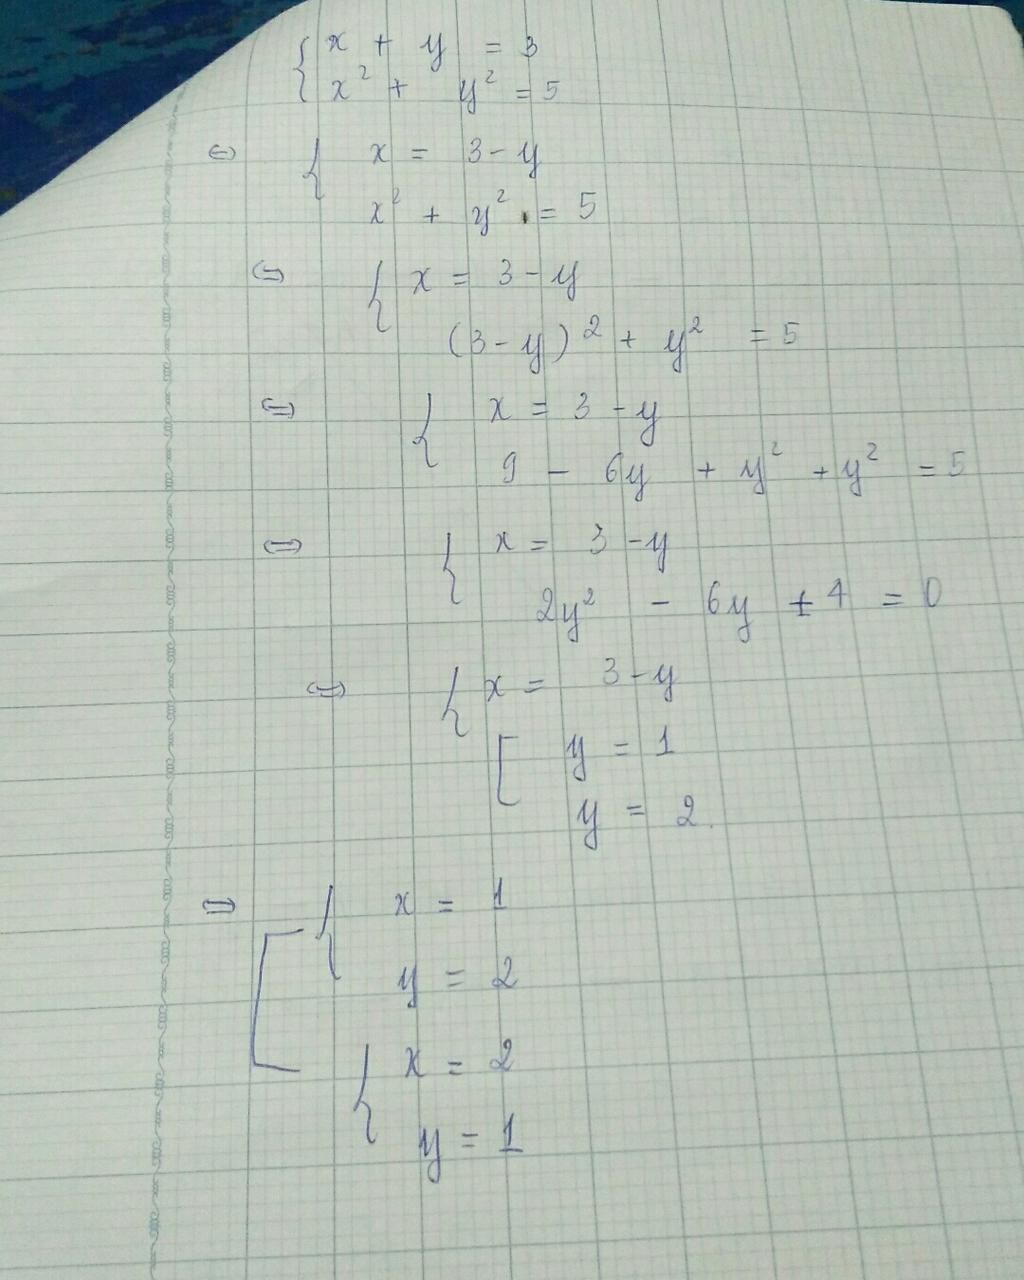 { x + y = 3
x² + y² = 5
⇔ { x = 3 - y
x² + y² = 5
⇔ { x = 3 - y
(3 - y)² + y² = 5
⇔ { x = 3 - y
9 - 6y + y² + y² = 5
⇔ { x = 3 - y
2y² - 6y + 4 = 0
⇔ { x = 3 - y
[ y = 1
y = 2
⇔ [ { x = 1
y = 2
{ x = 2
y = 1